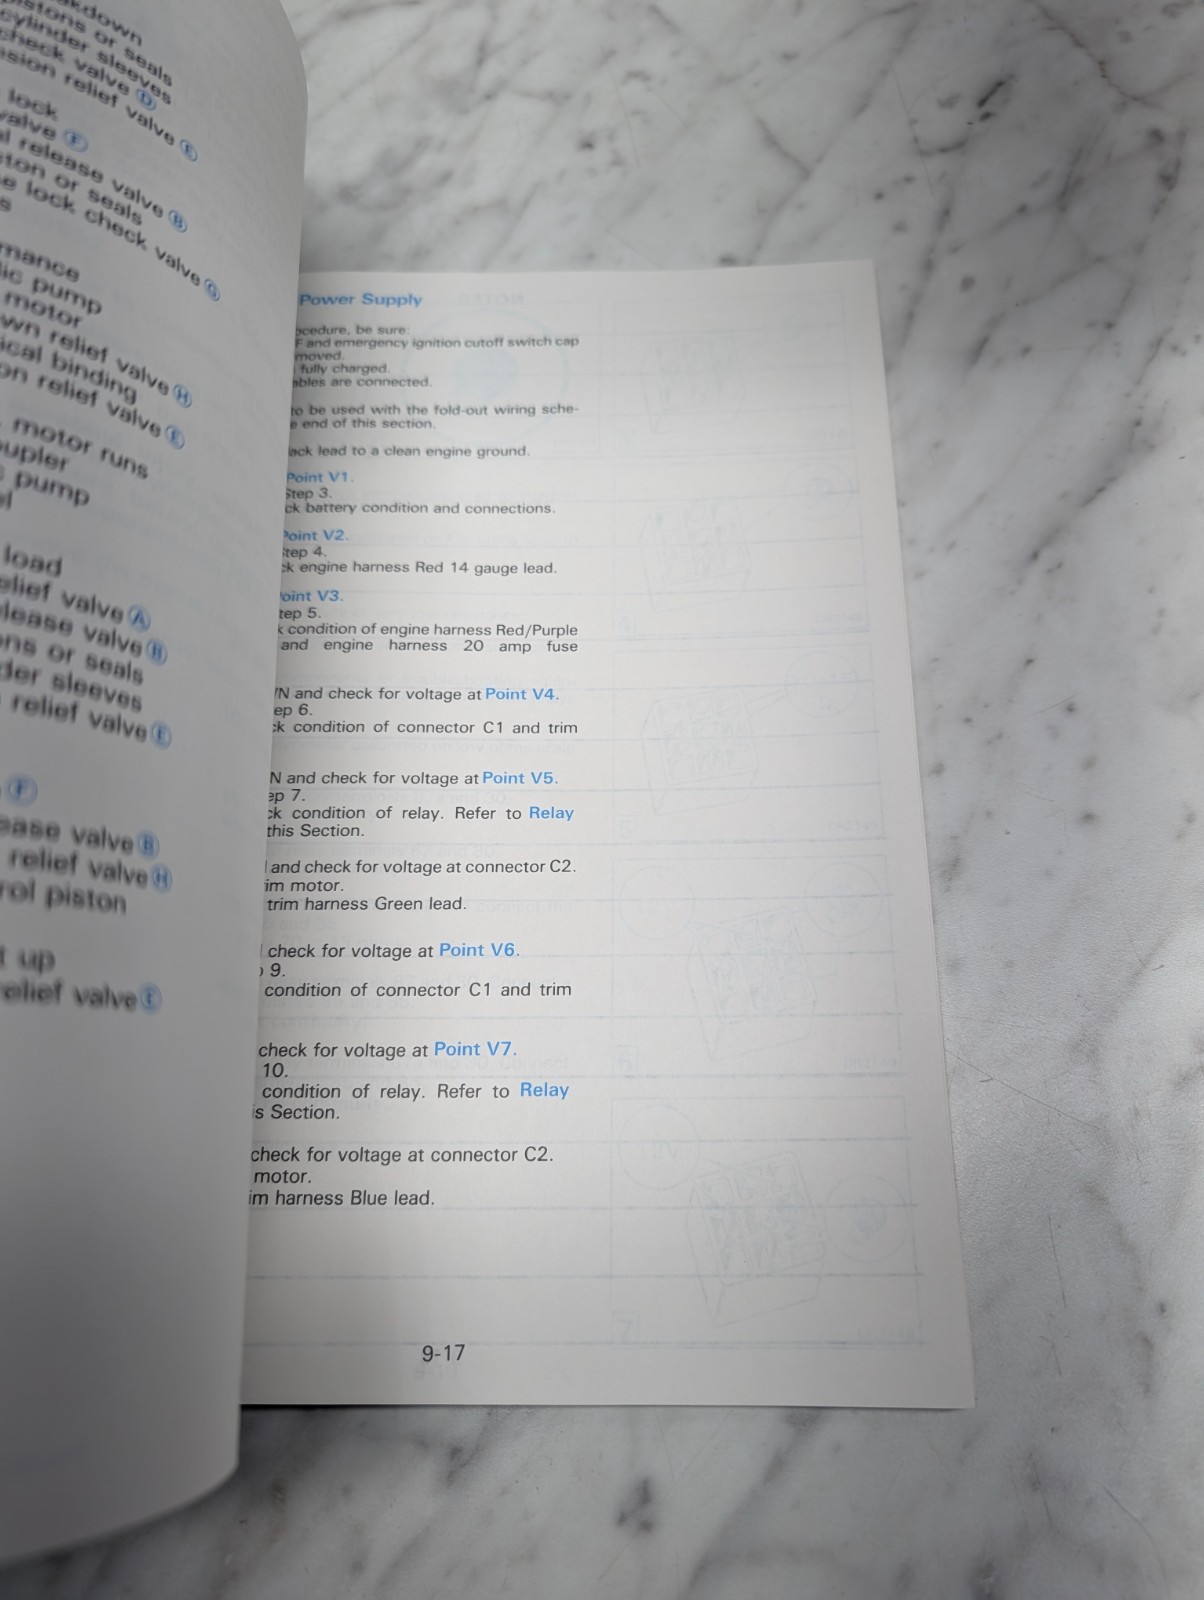 kdown
pistons or seals
cylinder sleeves
check valve D
relief valve E
lock
valve F
release valve B
or seals
lock check valve G
pump
motor
relief valve H
binding
relief valve E
motor runs
pump
load
relief valve A
valve B
or seals
sleeves
relief valve E
F
valve B
relief valve H
piston
up
relief valve E
Power Supply
ocedure, be sure:
F and emergency ignition cutoff switch cap
moved.
fully charged.
ables are connected.
to be used with the fold-out wiring sche-
e end of this section.
ack lead to a clean engine ground.
Point V1.
Step 3.
ck battery condition and connections.
Point V2.
Step 4.
ck engine harness Red 14 gauge lead.
oint V3.
tep 5.
k condition of engine harness Red/Purple
and engine harness 20 amp fuse
N and check for voltage at Point V4.
ep 6.
ck condition of connector C1 and trim
N and check for voltage at Point V5.
ep 7.
ck condition of relay. Refer to Relay
this Section.
and check for voltage at connector C2.
im motor.
trim harness Green lead.
check for voltage at Point V6.
9.
condition of connector C1 and trim
check for voltage at Point V7.
10.
condition of relay. Refer to Relay
is Section.
check for voltage at connector C2.
motor.
im harness Blue lead.
9-17